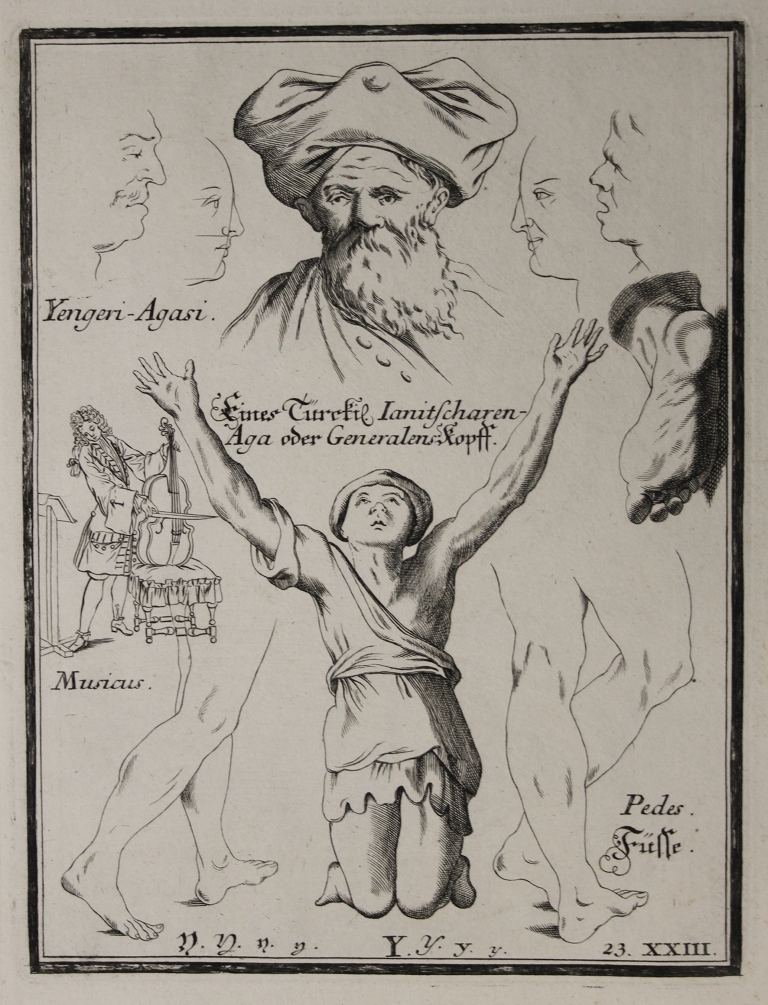 Yengeri-Agasi.
Eines Türckis. Ianitscharen-
Aga oder Generalens Kopff.
Musicus.
Pedes.
Füsse.
Y. Y. y. y. Y. Y. y. y. 23. XXIII.